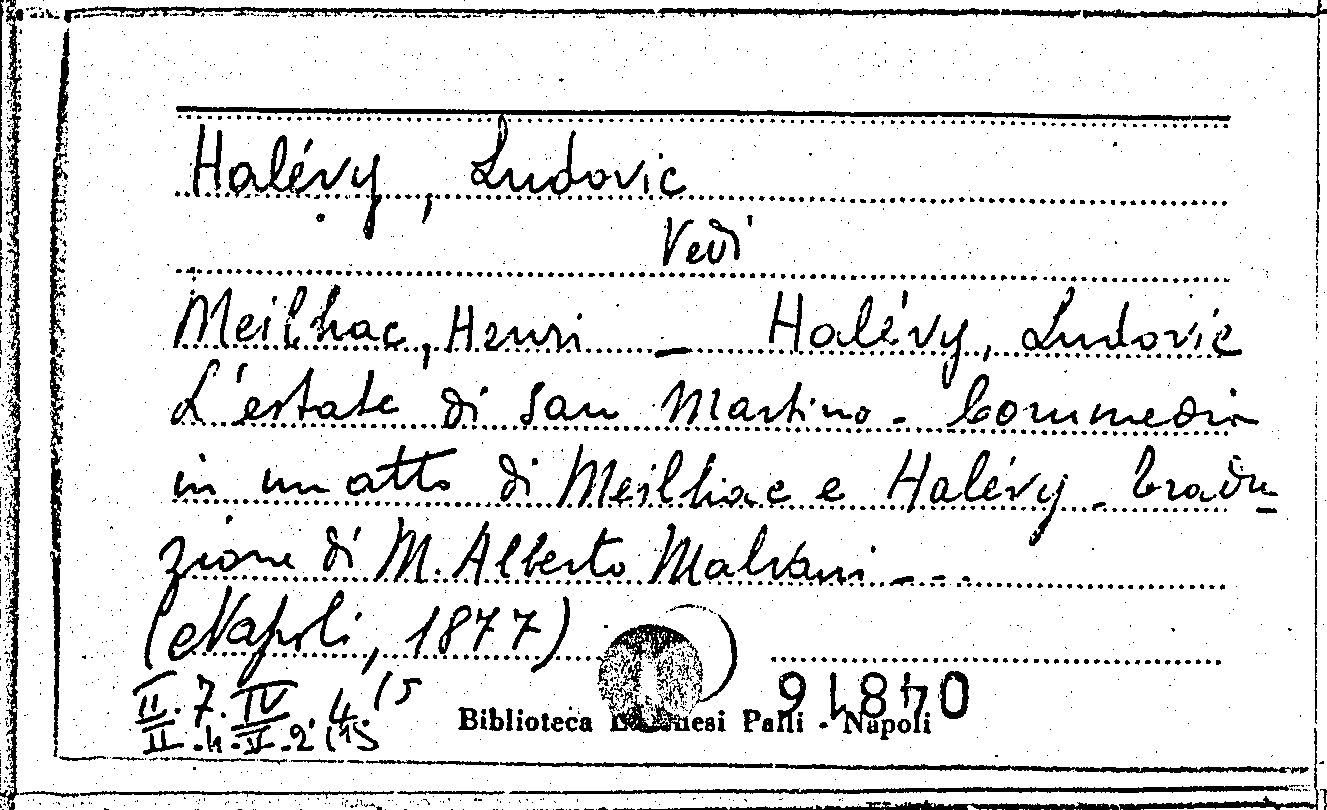 Halévy, Ludovic
Vedi
Meilhac, Henri - Halévy, Ludovic
L'estate di San Martino - Commedia
in un atto di Meilhac e Halévy - Tradu-
zione di M. Alberto Malvani - - -
(Napoli, 1877)
II. 7. IV. 4. (5
II. 4. V. 2 (15
Biblioteca Palli - Napoli